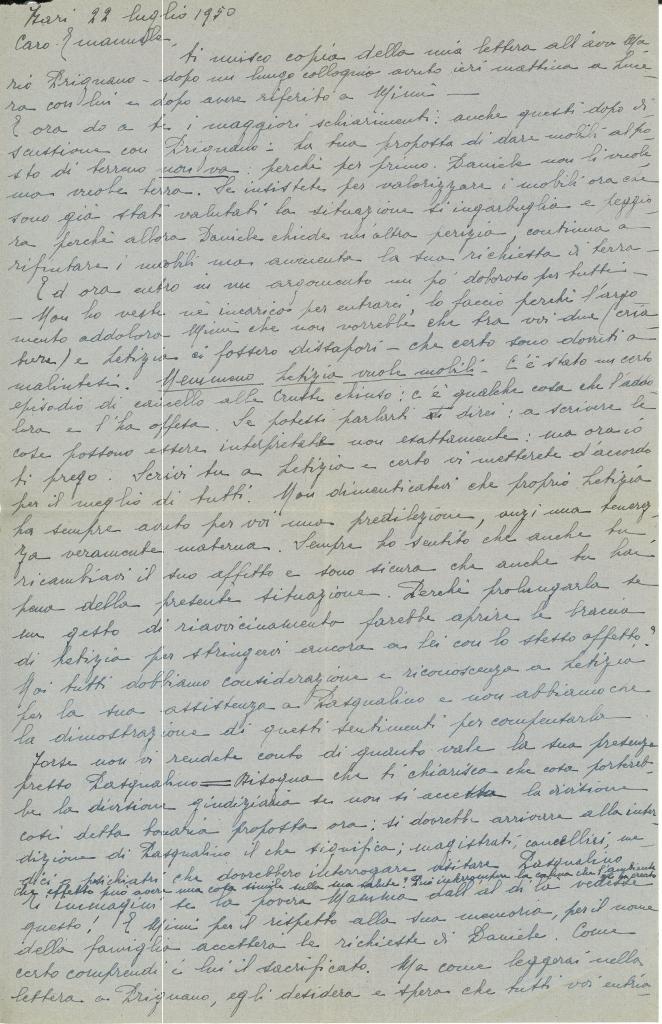 Bari 22 luglio 1950
Caro Emanuele,
ti unisco copia della mia lettera all'avv. Ma
rio Prignano - dopo un lungo colloquio avuto ieri mattina a Luce
ra con lui e dopo avere riferito a Mimì —
E ora do a te i maggiori schiarimenti: anche questi dopo di
scussione con Prignano: la tua proposta di dare mobili al po
sto di terreno non va: perchè per primo Daniele non li vuole
ma vuole terra. Se insistete per valorizzare i mobili ora che
sono già stati valutati la situazione si ingarbuglia e peggio
ra perchè allora Daniele chiede un'altra perizia, continua a
rifiutare i mobili ma aumenta la sua richiesta di terra -
Ed ora entro in un argomento un po' doloroso per tutti -
- Non ho veste nè incarico per entrarci, lo faccio perchè l'argo
mento addolora Mimì che non vorrebbe che tra voi due
e Letizia ci fossero dissapori - che certo sono dovuti a
malintesi. Nemmeno Letizia vuole mobili. C'è stato un certo
episodio di cancello alle chiuso: c'è qualche cosa che l'addo
lora e l'ha offesa. Se potessi parlarti direi: a scrivere le
cose possono essere interpretate non esattamente: ma ora io
ti prego. Scrivi tu a Letizia e certo vi metterete d'accordo
per il meglio di tutti. Non dimenticatevi che proprio Letizia
ha sempre avuto per voi una predilezione, anzi una tenerez
za veramente materna. Sempre ho sentito che anche tu
ricambiavi il suo affetto e sono sicura che anche tu hai
pena della presente situazione. Perchè prolungarla se
un gesto di riavvicinamento farebbe aprire le braccia
di Letizia per stringervi ancora a lei con lo stesso affetto?
Noi tutti dobbiamo considerazione e riconoscenza a Letizia
per la sua assistenza a Pasqualino e non abbiamo che
la dimostrazione di questi sentimenti per compensarla.
Forse non vi rendete conto di quanto vale la sua presenza
presso Pasqualino = Bisogna che ti chiarisca che cosa portereb
be la divisione giudiziaria se non si accetta la divisione
così detta bonaria proposta ora: si dovrebbe arrivare alla inter
dizione di Pasqualino il che significa; magistrati, cancellieri, me
dici e psichiatri che dovrebbero interrogare visitare Pasqualino.
Che effetto può avere una cosa simile sulla sua salute? Può interrompere la calma che l'ambiente gli
Ti immagini se la povera Mamma dall'al di là vedesse
questo! E Mimì per il rispetto alla sua memoria, per il nome
della famiglia accetterà le richieste di Daniele. Come
certo comprendi è lui il sacrificato. Ma come leggerai nella
lettera a Prignano, egli desidera e spera che tutti voi entria